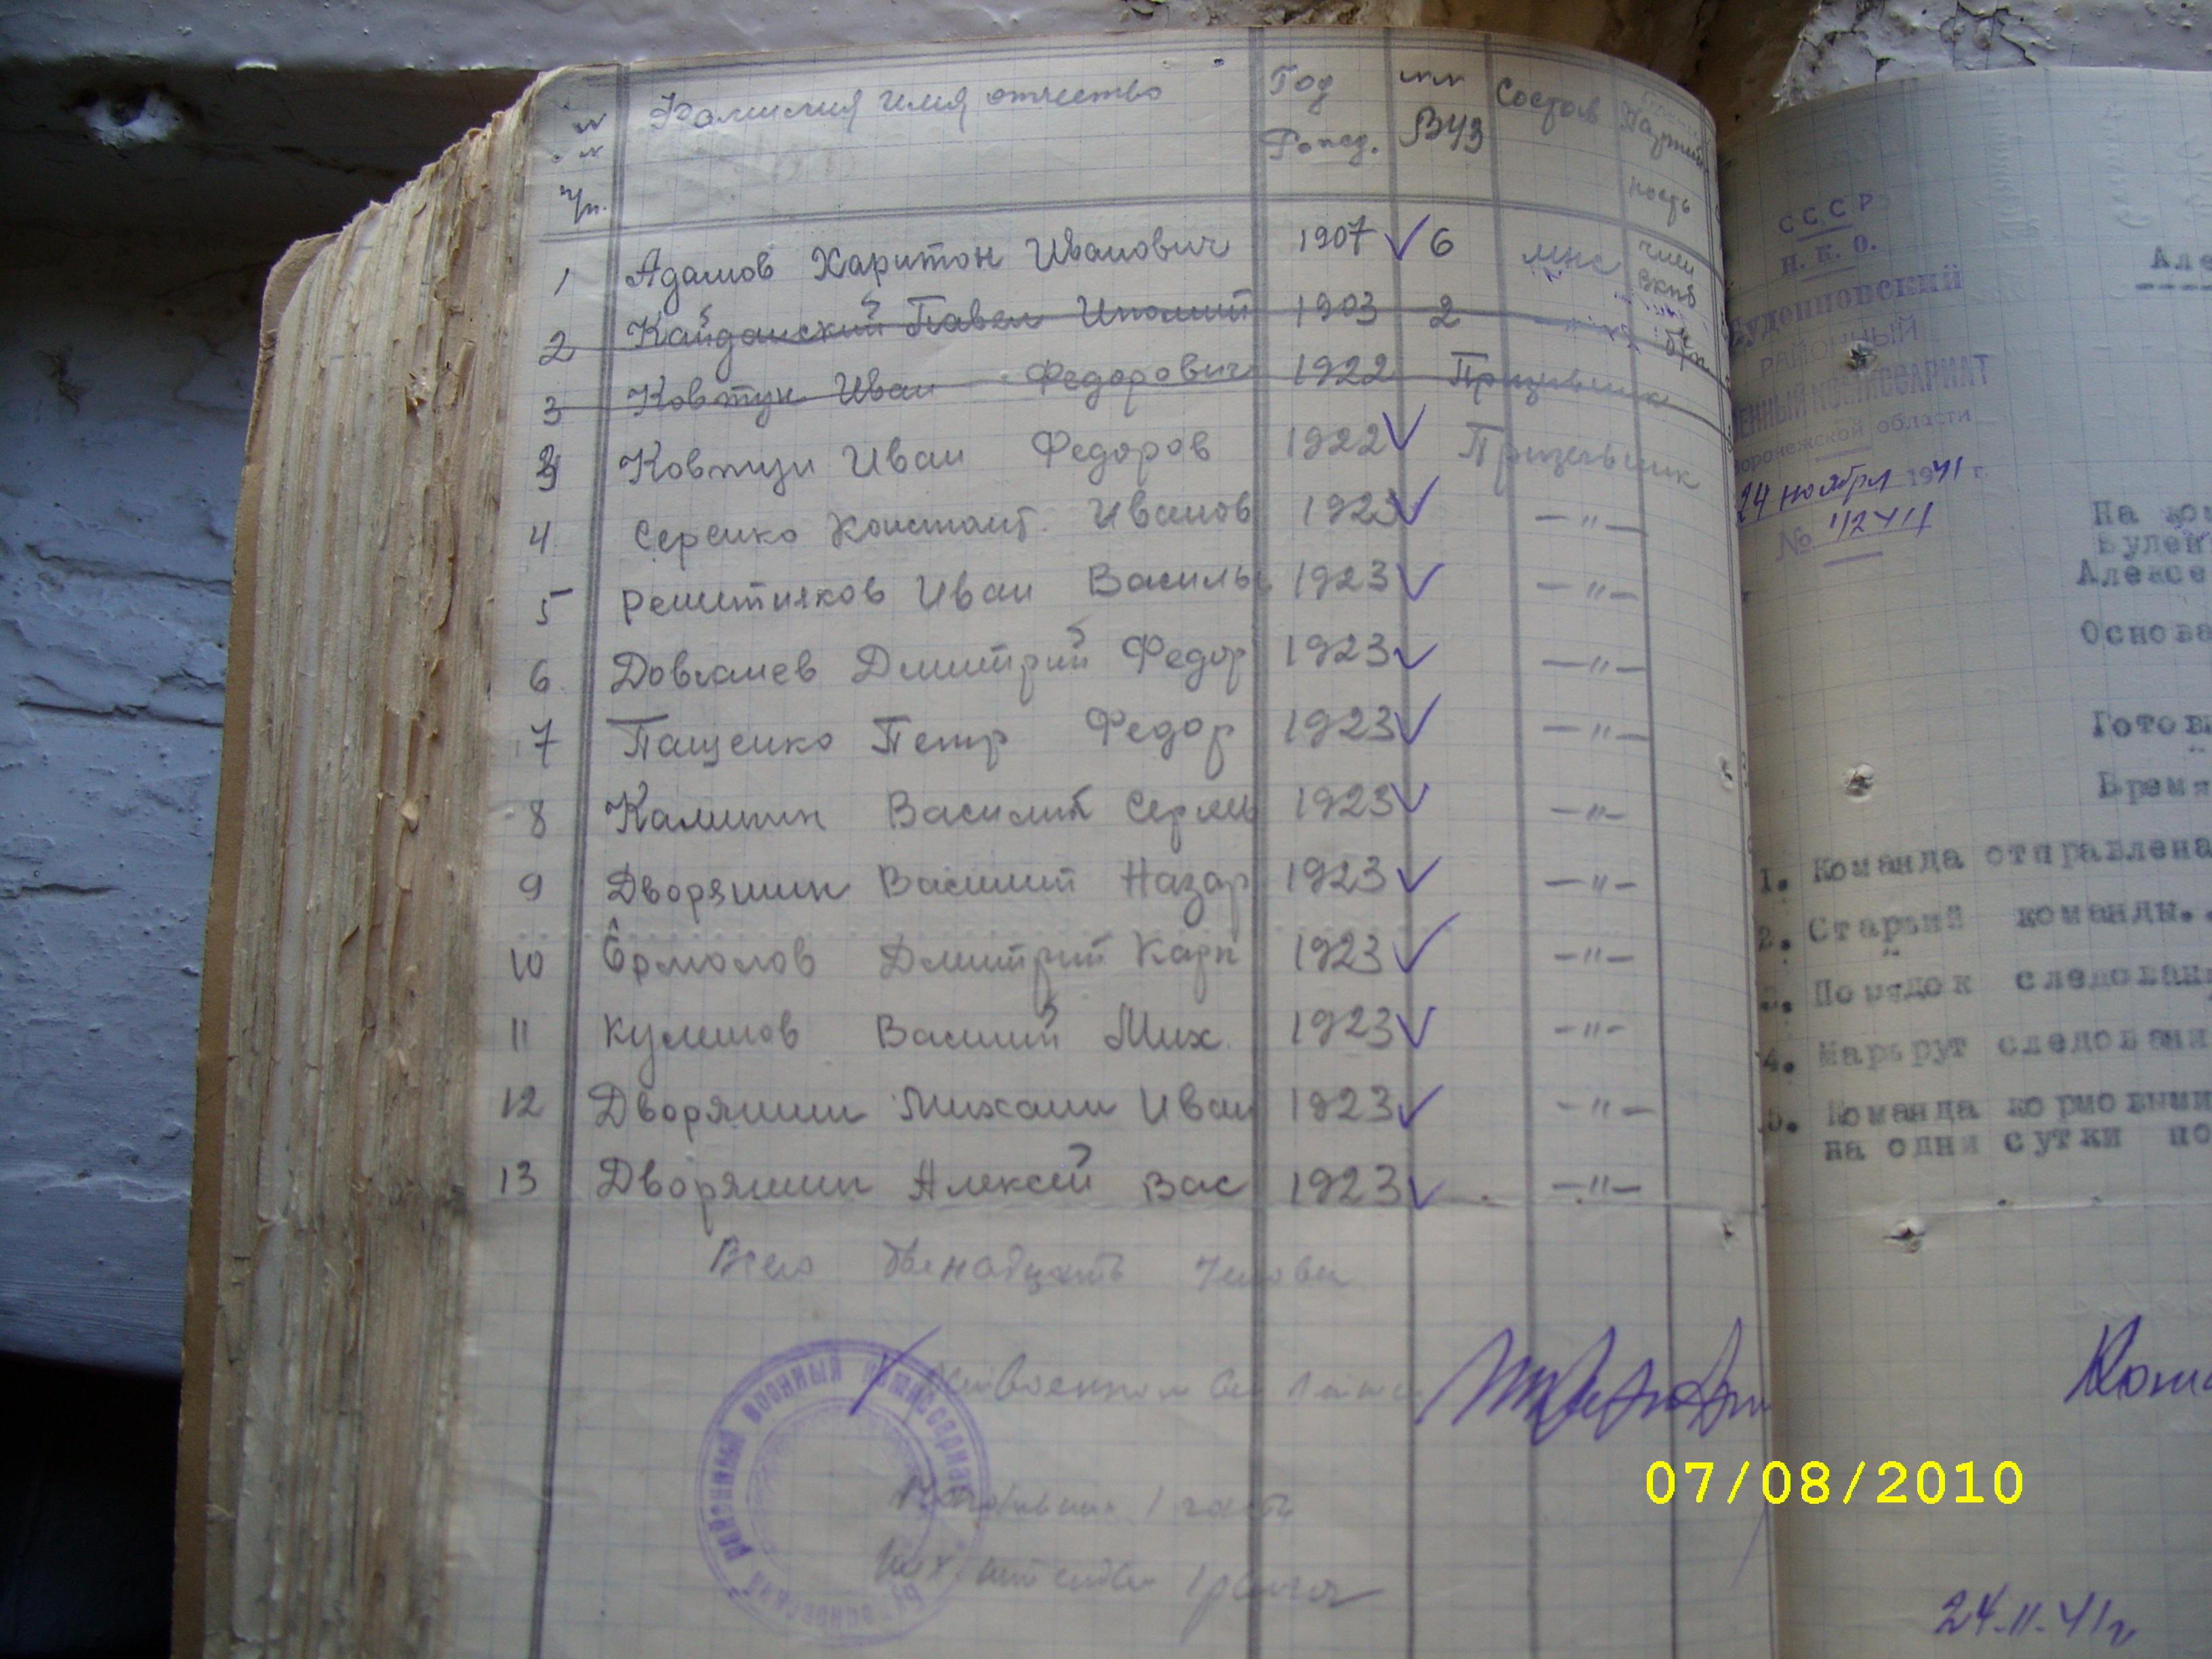 № № п/п. Фамилия имя отчество Год Рожд. №№ ВУЗ Состав Партий ность
1 Адамов Харитон Иванович 1907 6 мнс член ВКПб
2 Кайданский Павел Иполит 1903 2 б/п
3 Ковтун Иван Федорович 1922 Призывник
3 Ковтун Иван Федоров 1922 Призывник
4 Серенко Констант. Иванов 1923 —"—
5 Решитняков Иван Василь 1923 —"—
6 Довгалев Дмитрий Федор 1923 —"—
7 Пащенко Петр Федор 1923 —"—
8 Калинин Василий Сергеь 1923 —"—
9 Дворянин Василий Назар 1923 —"—
10 Ермолов Дмитрий Карп 1923 —"—
11 Кулешов Василий Мих. 1923 —"—
12 Дворянин Михаил Иван 1923 —"—
13 Дворянин Алексей Вас 1923 —"—
Всего двенадцать человек
районный военный комиссариат
1 части
1 ранга
СССР
Н. К. О.
Буденновский
РАЙОННЫЙ
ВОЕННЫЙ КОМИССАРИАТ
Воронежской области
24 ноября 1941 г.
№
Але
На ко
Буден
Алексе
Основа
Готов
Время
1. Команда отправлена
2. Старший команды.
3. Порядок следован
4. Маршрут следовани
5. Команда кормовыми
на одни сутки по
24-11-41г
07/08/2010